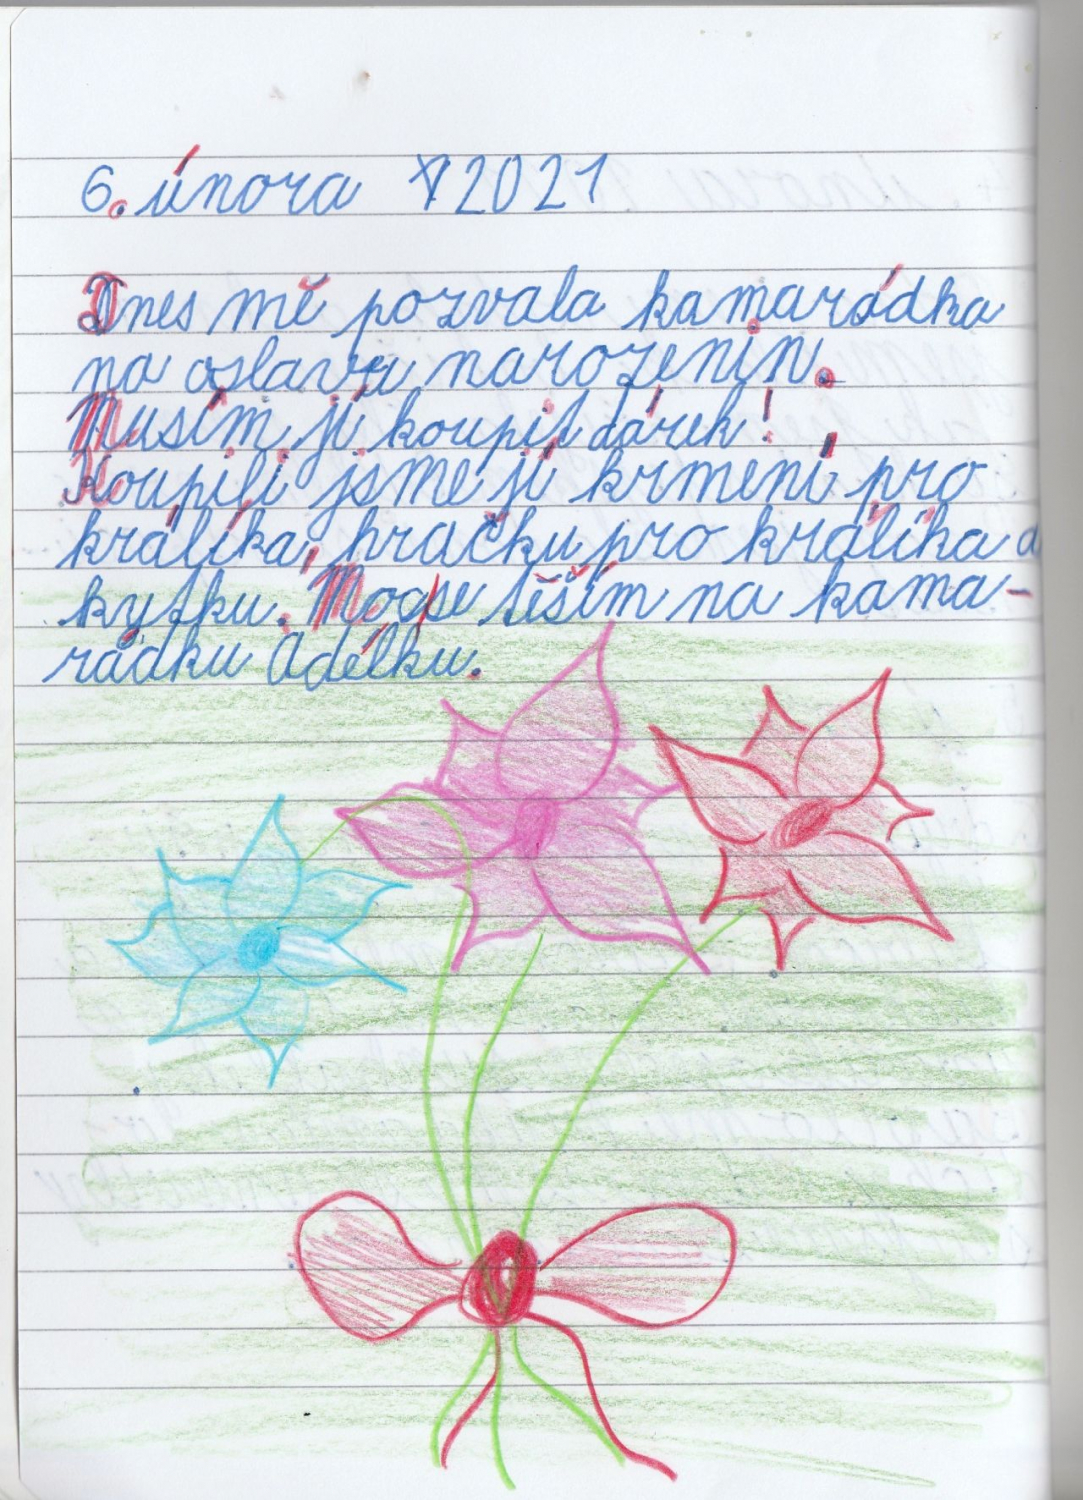 6. února 2021
Dnes mě pozvala kamarádka
na oslavu narozenin.
Musím jí koupit dárek!
Koupili jsme jí krmení pro
králíka, hračku pro králíka a
kytku. Moc se těším na kama-
rádku Adélku.